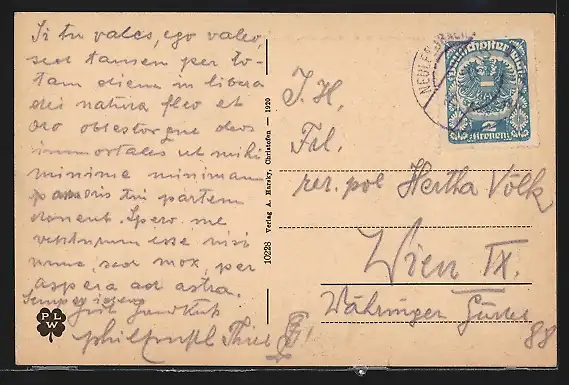 Si tu vales, ego valeo,
sed tamen per to-
tam diem in libera
dei natura fleo et
oro obtestorque deos
immortales ut mihi
minime minimam
partem
donent. Spero me
venturum esse nisi
nunc, sed mox, per
aspera ad astra.
Semper idem
PLW
10228 Verlag A. Harsky, Christofen — 1920
NEULENGBACH
Deutschösterreich
2
Kronen
I. H.
Frl.
rer. pol Hertha Völk
Wien IX.
Währinger Gürtel
88